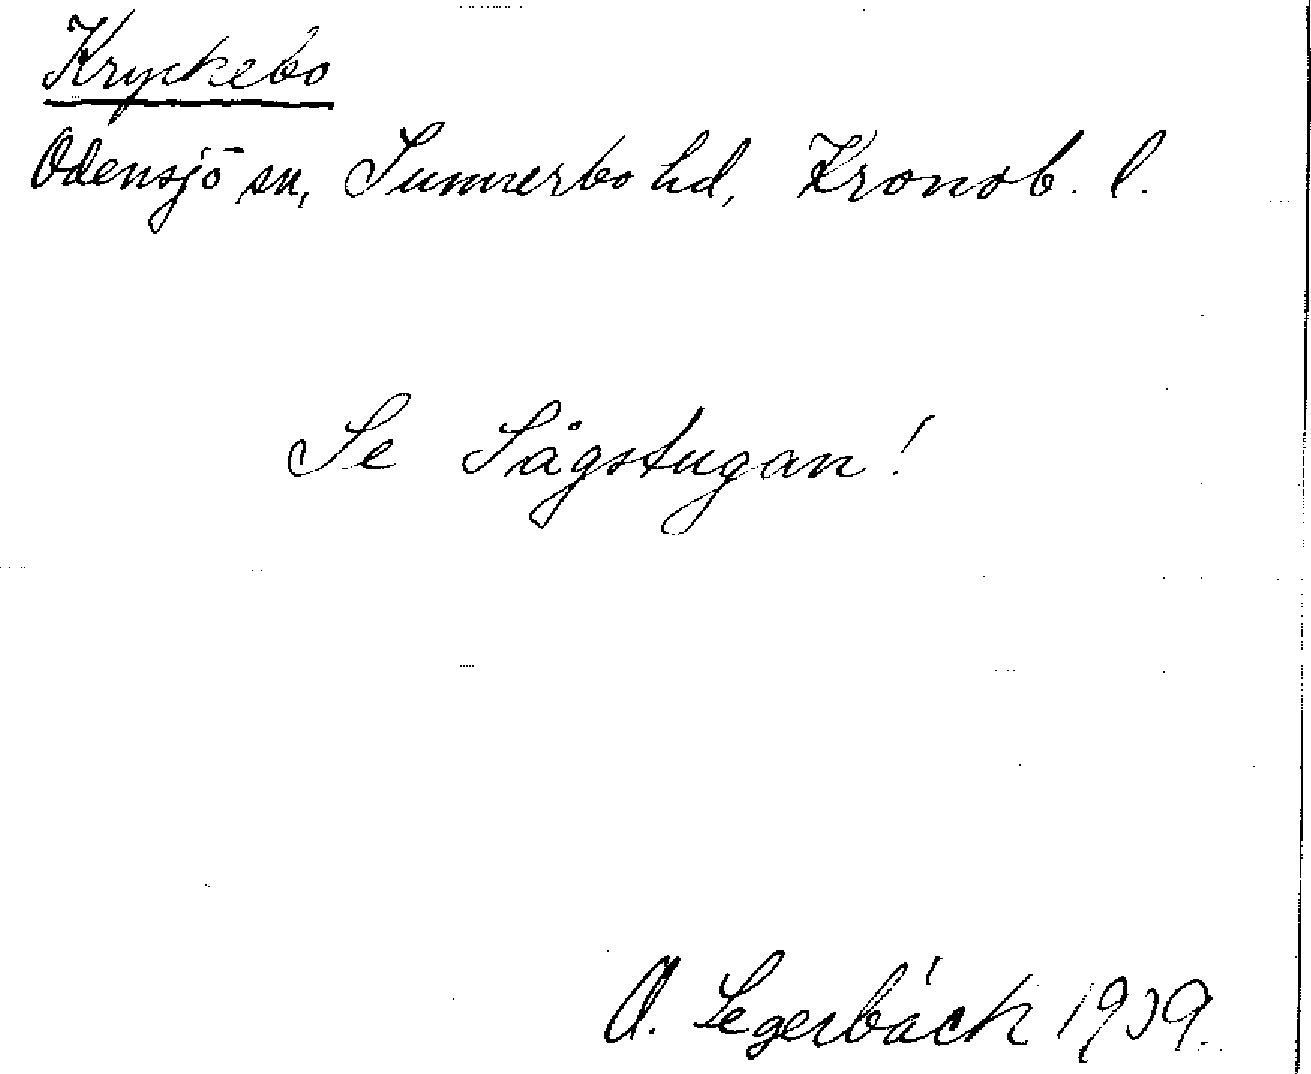 Kryckebo
Odensjö sn, Sunnerbo hd, Kronob. l.
Se Sågstugan!
A. Segerbäck 1939.